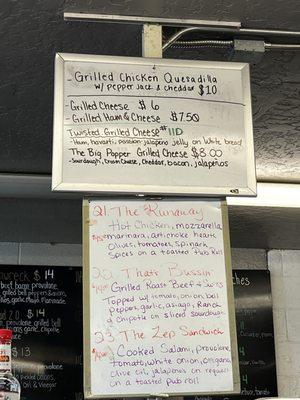 - Grilled Chicken Quesadilla
w/ pepper jack & cheddar $10
- Grilled Cheese $6
- Grilled Ham & Cheese $7.50
Twisted Grilled Cheese #11D
- Ham, havarti, passion jalapeño jelly on White bread
The Big Popper Grilled Cheese $8.00
- Sourdough, Cream Cheese, Cheddar, bacon, jalapeños
21. The Runaway
Hot Chicken, mozzarella
marinara, artichoke hearts
Olives, tomatoes, Spinach
Spices on a toasted Pub Roll
22. That's Bussin'
Grilled Roast Beef + Swiss
Topped w/ tomato, onion, bell
pepper, garlic, asiago, Ranch
& Chipotle on sliced sourdough
23. The Zep Sandwich
Cooked Salami, provolone,
tomato, white onion, oregano,
olive oil, jalapeños on request
on a toasted pub roll
$14
provolone
Mayo, Marinade
$14
provolone
$13
Oil & Vinegar